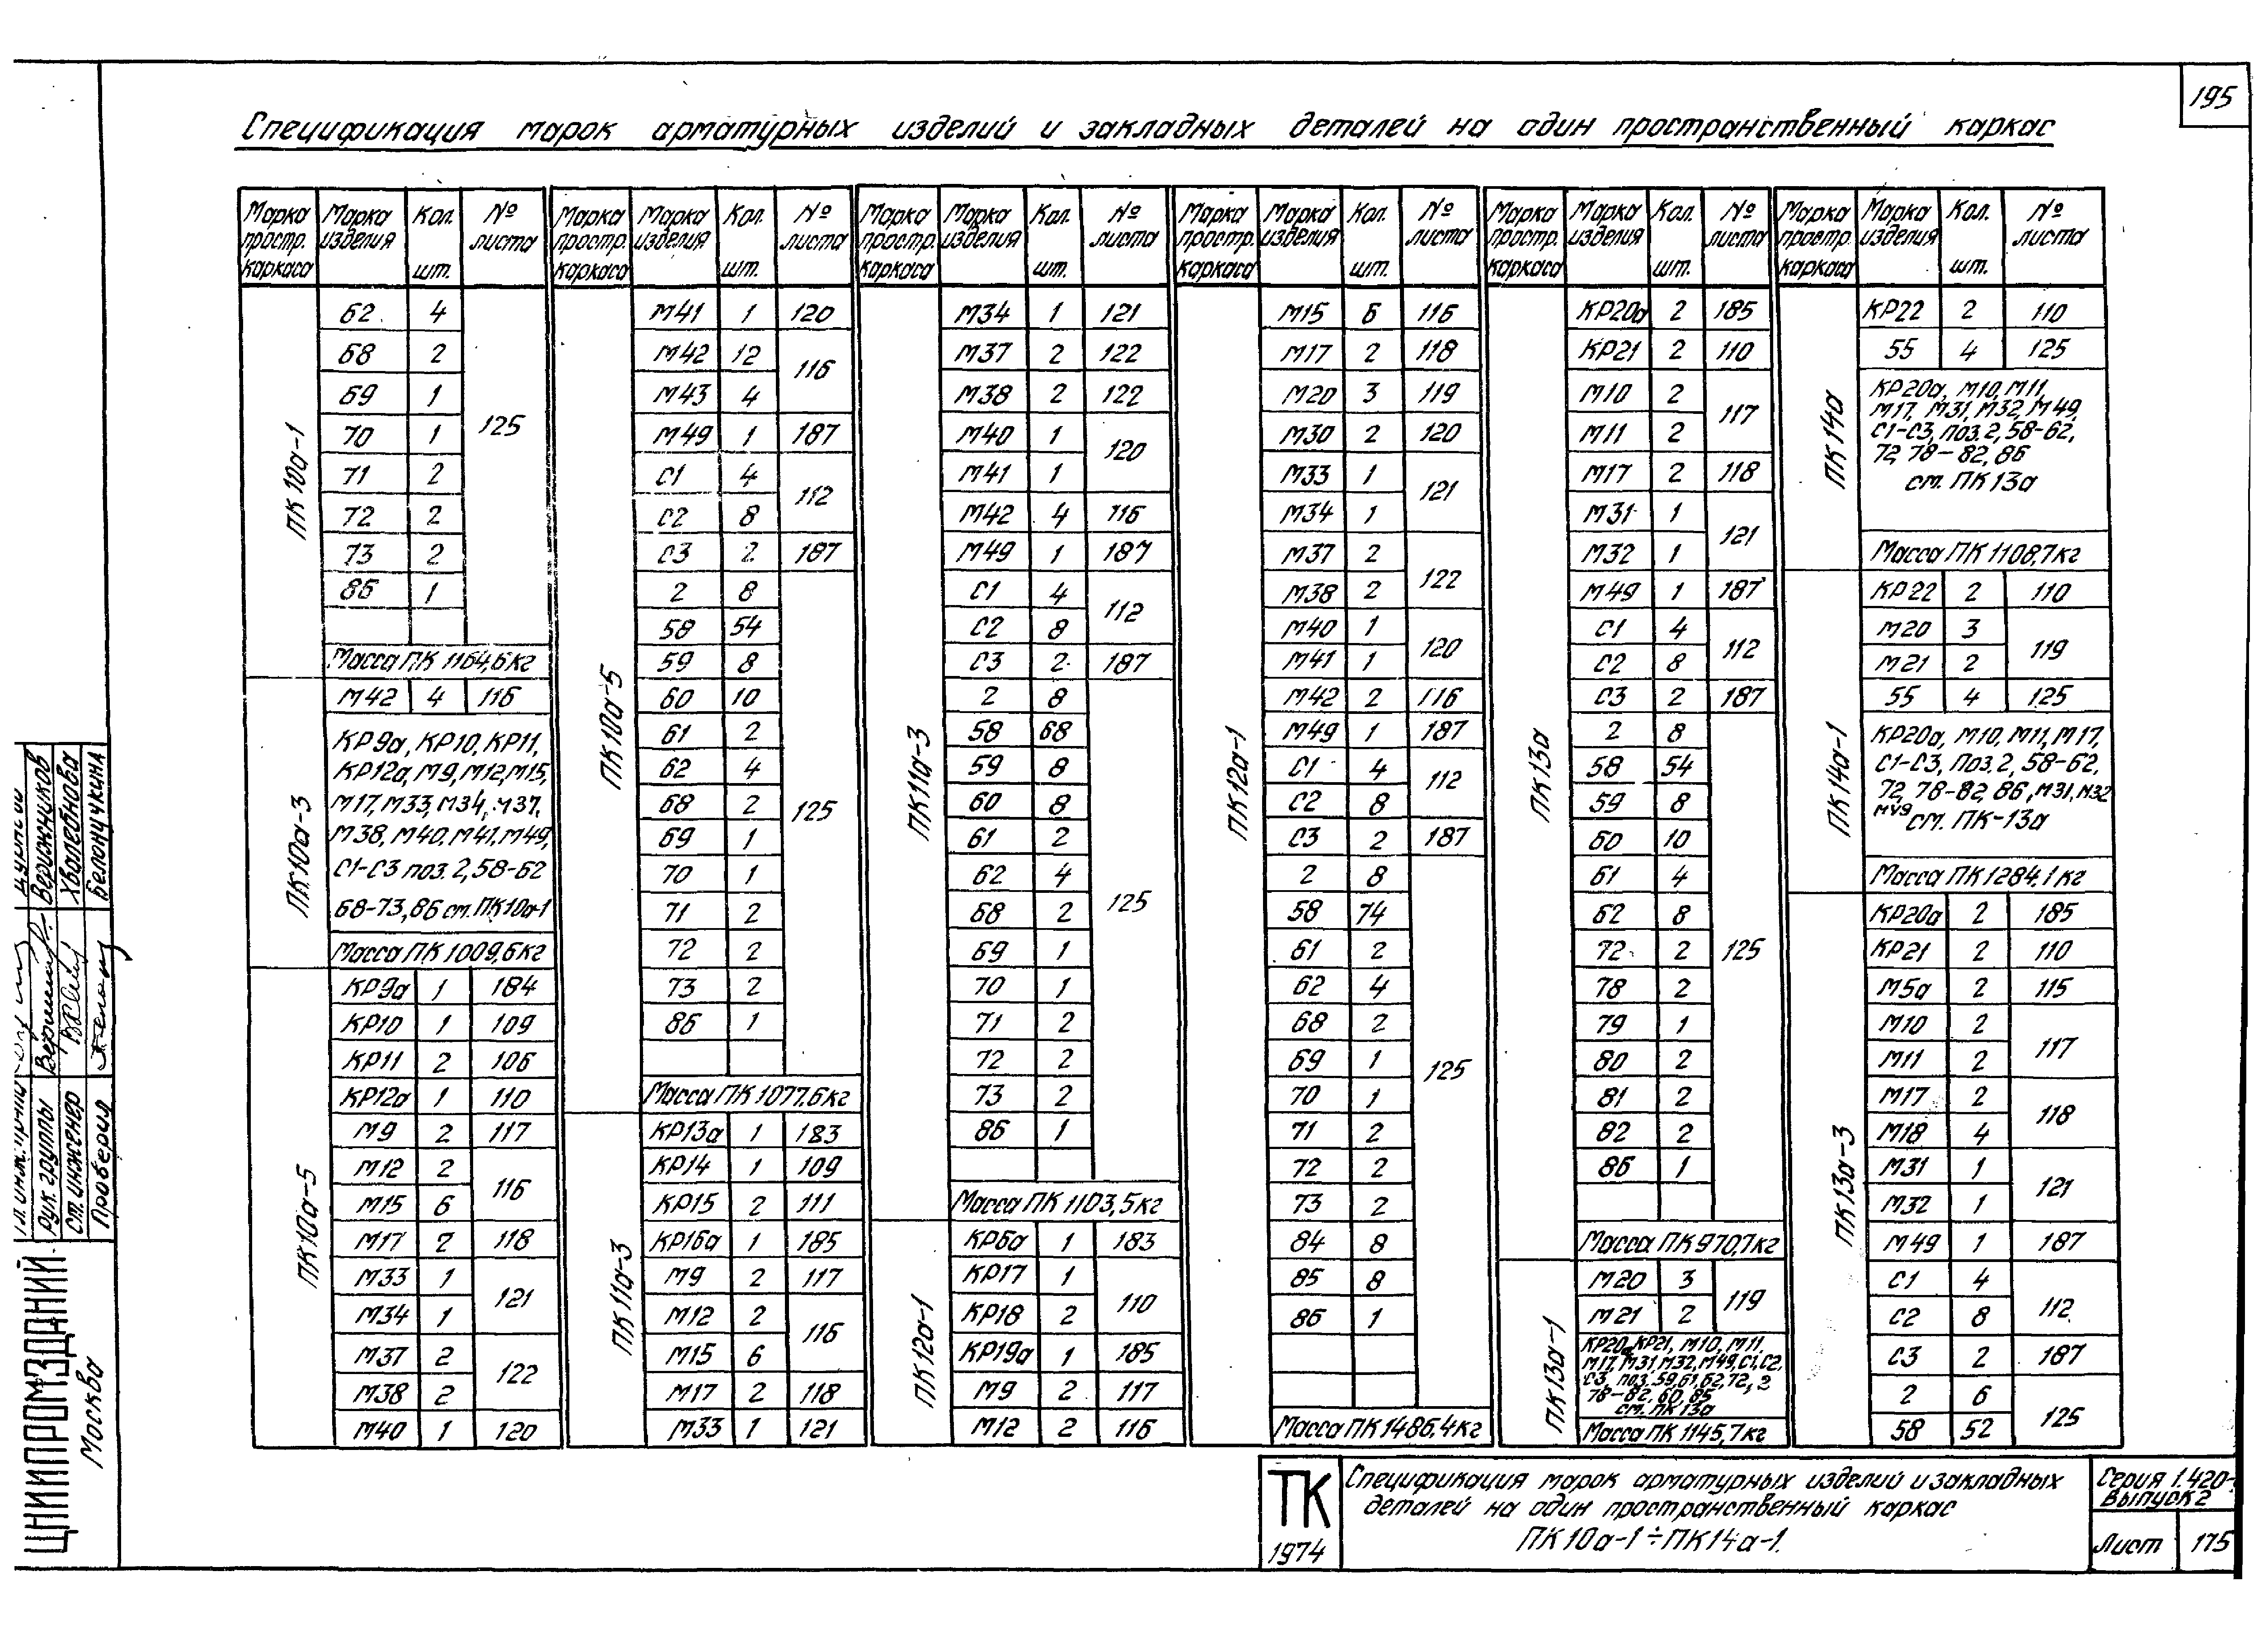 195
Спецификация марок арматурных изделий и закладных деталей на один пространственный каркас
Марка простр. каркаса | Марка изделия | Кол. шт. | № листа
ПК 10а-1
62 4
68 2
69 1
70 1
71 2
72 2
73 2
86 1
125
Масса ПК 1164,6кг
ПК10а-3
М42 4 116
КР9а, КР10, КР11,
КР12а, М9, М12, М15,
М17, М33, М34, М37,
М38, М40, М41, М49,
С1-С3 поз. 2, 58-62
68-73, 86 см. ПК10а-1
Масса ПК 1009,6кг
ПК10а-5
КР9а 1 184
КР10 1 109
КР11 2 106
КР12а 1 110
М9 2 117
М12 2
М15 6
116
М17 2 118
М33 1
М34 1
121
М37 2
М38 2
122
М40 1 120
Марка простр. каркаса | Марка изделия | Кол. шт. | № листа
ПК10а-5
М41 1 120
М42 12
М43 4
116
М49 1 187
С1 4
С2 8
112
С3 2 187
2 8
58 54
59 8
60 10
61 2
62 4
68 2
69 1
70 1
71 2
72 2
73 2
86 1
125
Масса ПК 1077,6кг
ПК11а-3
КР13а 1 183
КР14 1 109
КР15 2 111
КР16а 1 185
М9 2 117
М12 2
М15 6
116
М17 2 118
М33 1 121
Марка простр. каркаса | Марка изделия | Кол. шт. | № листа
ПК11а-3
М34 1 121
М37 2 122
М38 2 122
М40 1
М41 1
120
М42 4 116
М49 1 187
С1 4
С2 8
112
С3 2 187
2 8
58 68
59 8
60 8
61 2
62 4
68 2
69 1
70 1
71 2
72 2
73 2
86 1
125
Масса ПК 1103,5кг
ПК12а-1
КР6а 1 183
КР17 1
КР18 2
110
КР19а 1 185
М9 2 117
М12 2 116
Марка простр. каркаса | Марка изделия | Кол. шт. | № листа
ПК12а-1
М15 6 116
М17 2 118
М20 3 119
М30 2 120
М33 1
М34 1
121
М37 2
М38 2
122
М40 1
М41 1
120
М42 2 116
М49 1 187
С1 4
С2 8
112
С3 2 187
2 8
58 74
61 2
62 4
68 2
69 1
70 1
71 2
72 2
73 2
84 8
85 8
86 1
125
Масса ПК 1486,4кг
Марка простр. каркаса | Марка изделия | Кол. шт. | № листа
ПК13а
КР20а 2 185
КР21 2 110
М10 2
М11 2
117
М17 2 118
М31 1
М32 1
121
М49 1 187
С1 4
С2 8
112
С3 2 187
2 8
58 54
59 8
60 10
61 4
62 8
72 2
78 2
79 1
80 2
81 2
82 2
86 1
125
Масса ПК 970,7кг
ПК13а-1
М20 3
М21 2
119
КР20а, КР21, М10, М11,
М17, М31, М32, М49, С1, С2,
С3, поз. 59, 61, 62, 72, 2
78-82, 60, 85
см. ПК 13а
Масса ПК 1145,7кг
Марка простр. каркаса | Марка изделия | Кол. шт. | № листа
ПК14а
КР22 2 110
55 4 125
КР20а, М10, М11,
М17, М31, М32, М49,
С1-С3, поз. 2, 58-62,
72, 78-82, 86
см. ПК 13а
Масса ПК 1108,7кг
ПК14а-1
КР22 2 110
М20 3
М21 2
119
55 4 125
КР20а, М10, М11, М17,
С1-С3, поз. 2, 58-62,
72, 78-82, 86, М31, М32
М49 см. ПК-13а
Масса ПК 1284,1кг
ПК13а-3
КР20а 2 185
КР21 2 110
М5а 2 115
М10 2
М11 2
117
М17 2
М18 4
118
М31 1
М32 1
121
М49 1 187
С1 4
С2 8
112
С3 2 187
2 6
58 52
125
ТК
1974
Спецификация марок арматурных изделий и закладных
деталей на один пространственный каркас
ПК 10а-1÷ПК14а-1.
Серия 1.420-
Выпуск 2
Лист 175
ЦНИИПРОМЗДАНИЙ
Москва
Рук. группы Верижников
Ст. инженер Хвалебнова
Проверил Белоничкина